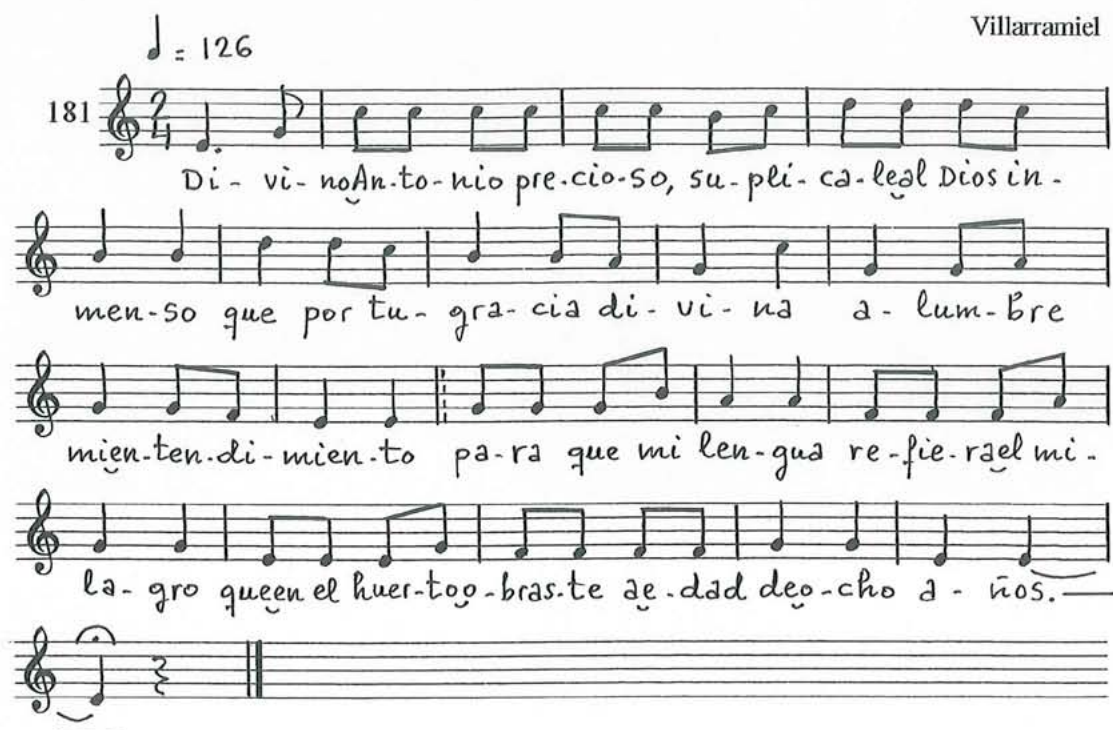 Villarramiel
♩ = 126
181
Di - vi - noAn - to - nio pre - cio - so, su - pli - ca - leal Dios in -
men - so que por tu - gra - cia di - vi - na a - lum - bre
mien - ten - di - mien - to pa - ra que mi len - gua re - fie - rael mi -
la - gro queen el huer - too - bras - te ae - dad deo - cho a - ños.